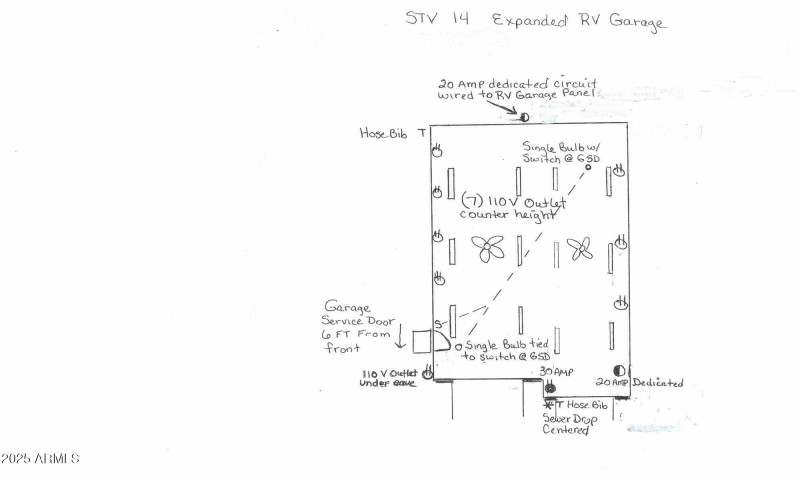 STV 14 Expanded RV Garage
20 Amp dedicated circuit
wired to RV Garage Panel
Hose Bib T
Single Bulb w/
Switch @ GSD
(7) 110V Outlet
counter height
Garage
Service Door
6 FT From
front
S
Single Bulb tied
to switch @ GSD
110 V Outlet
Under eave
30 AMP
20 AMP Dedicated
* T Hose Bib
Sewer Drop
Centered
2025 ARMLS